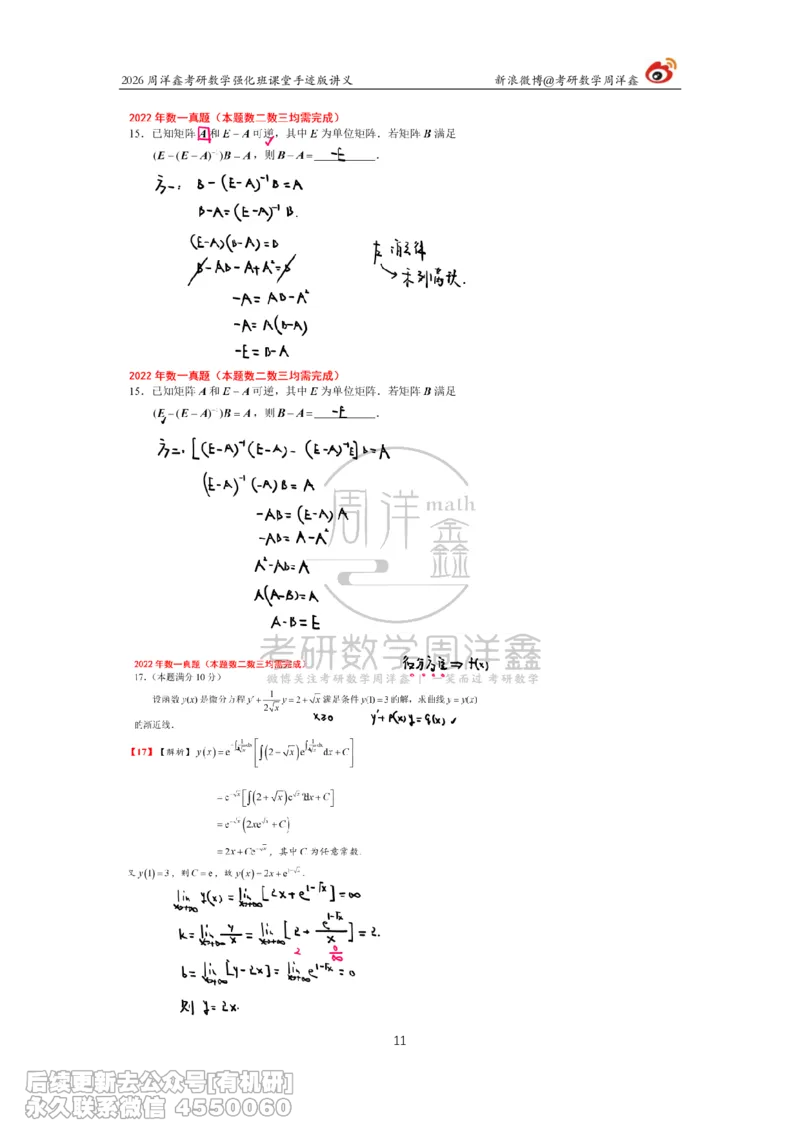 2026 周洋鑫考研数学强化班课堂手迹版讲义 新浪微博@考研数学周洋鑫
2022 年数一真题（本题数二数三均需完成）
15．已知矩阵 A 和 E − A 可逆，其中 E 为单位矩阵．若矩阵 B 满足
(E − (E − A)⁻¹)B = A，则 B − A = -E ．
方一: B-(E-A)⁻¹B=A
B-A=(E-A)⁻¹B.
(E-A)(B-A)=B
B-AB-A+A²=B
左消去律
→ 未列满秩.
-A= AB-A²
-A= A(B-A)
-E= B-A
2022 年数一真题（本题数二数三均需完成）
15．已知矩阵 A 和 E − A 可逆，其中 E 为单位矩阵．若矩阵 B 满足
(E − (E − A)⁻¹)B = A，则 B − A = -E ．
方二. [(E-A)⁻¹(E-A) - (E-A)⁻¹E]B=A
(E-A)⁻¹(-A)B= A
-AB= (E-A)A
-AB= A-A²
A²-AB=A
A(A-B)=A
A-B=E
周洋鑫 math
考研数学周洋鑫
微博关注考研数学周洋鑫 | 一笑而过 考研数学
2022 年数一真题（本题数二数三均需完成）
17.（本题满分 10 分）
设函数 y(x) 是微分方程 y′ + 1/(2√x) y = 2 + √x 满足条件 y(1) = 3 的解，求曲线 y = y(x)
x≥0 y'+P(x)y=Q(x) ✓
的渐近线．
【17】【解析】 y(x) = e^(−∫1/(2√x)dx) [∫(2+√x)e^(∫1/(2√x)dx) dx + C]
= e^(−√x) [∫(2+√x)e^(√x) dx + C]
= e^(−√x) (2xe^(√x) + C)
= 2x + Ce^(−√x)，其中 C 为任意常数.
又 y(1) = 3，则 C = e，故 y(x) = 2x + e^(1−√x).
lim x→+∞ y(x) = lim x→+∞ [2x+e^(1-√x)] = ∞
k= lim x→+∞ y/x = lim x→+∞ [2+ e^(1-√x)/x] = 2.
2 0/∞
b= lim x→+∞ [y-2x] = lim x→+∞ e^(1-√x) = 0
则 y= 2x.
11
后续更新去公众号[有机研]
永久联系微信 4550060